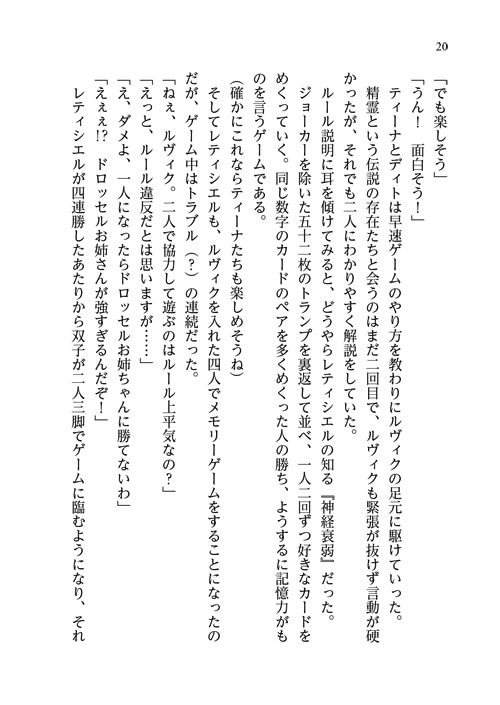 20
「でも楽しそう」
「うん！　面白そう！」
　ティーナとディトは早速ゲームのやり方を教わりにルヴィクの足元に駆けていった。
　精霊という伝説の存在たちと会うのはまだ二回目で、ルヴィクも緊張が抜けず言動が硬
かったが、それでも二人にわかりやすく解説をしていた。
　ルール説明に耳を傾けてみると、どうやらレティシエルの知る『神経衰弱』だった。
　ジョーカーを除いた五十二枚のトランプを裏返して並べ、一人二回ずつ好きなカードを
めくっていく。同じ数字のカードのペアを多くめくった人の勝ち、ようするに記憶力がも
のを言うゲームである。
（確かにこれならティーナたちも楽しめそうね）
　そしてレティシエルも、ルヴィクを入れた四人でメモリーゲームをすることになったの
だが、ゲーム中はトラブル（？）の連続だった。
「ねぇ、ルヴィク。二人で協力して遊ぶのはルール上平気なの？」
「えっと、ルール違反だとは思いますが……」
「え、ダメよ、一人になったらドロッセルお姉ちゃんに勝てないわ」
「えぇぇ!?　ドロッセルお姉さんが強すぎるんだぞ！」
　レティシエルが四連勝したあたりから双子が二人三脚でゲームに臨むようになり、それ